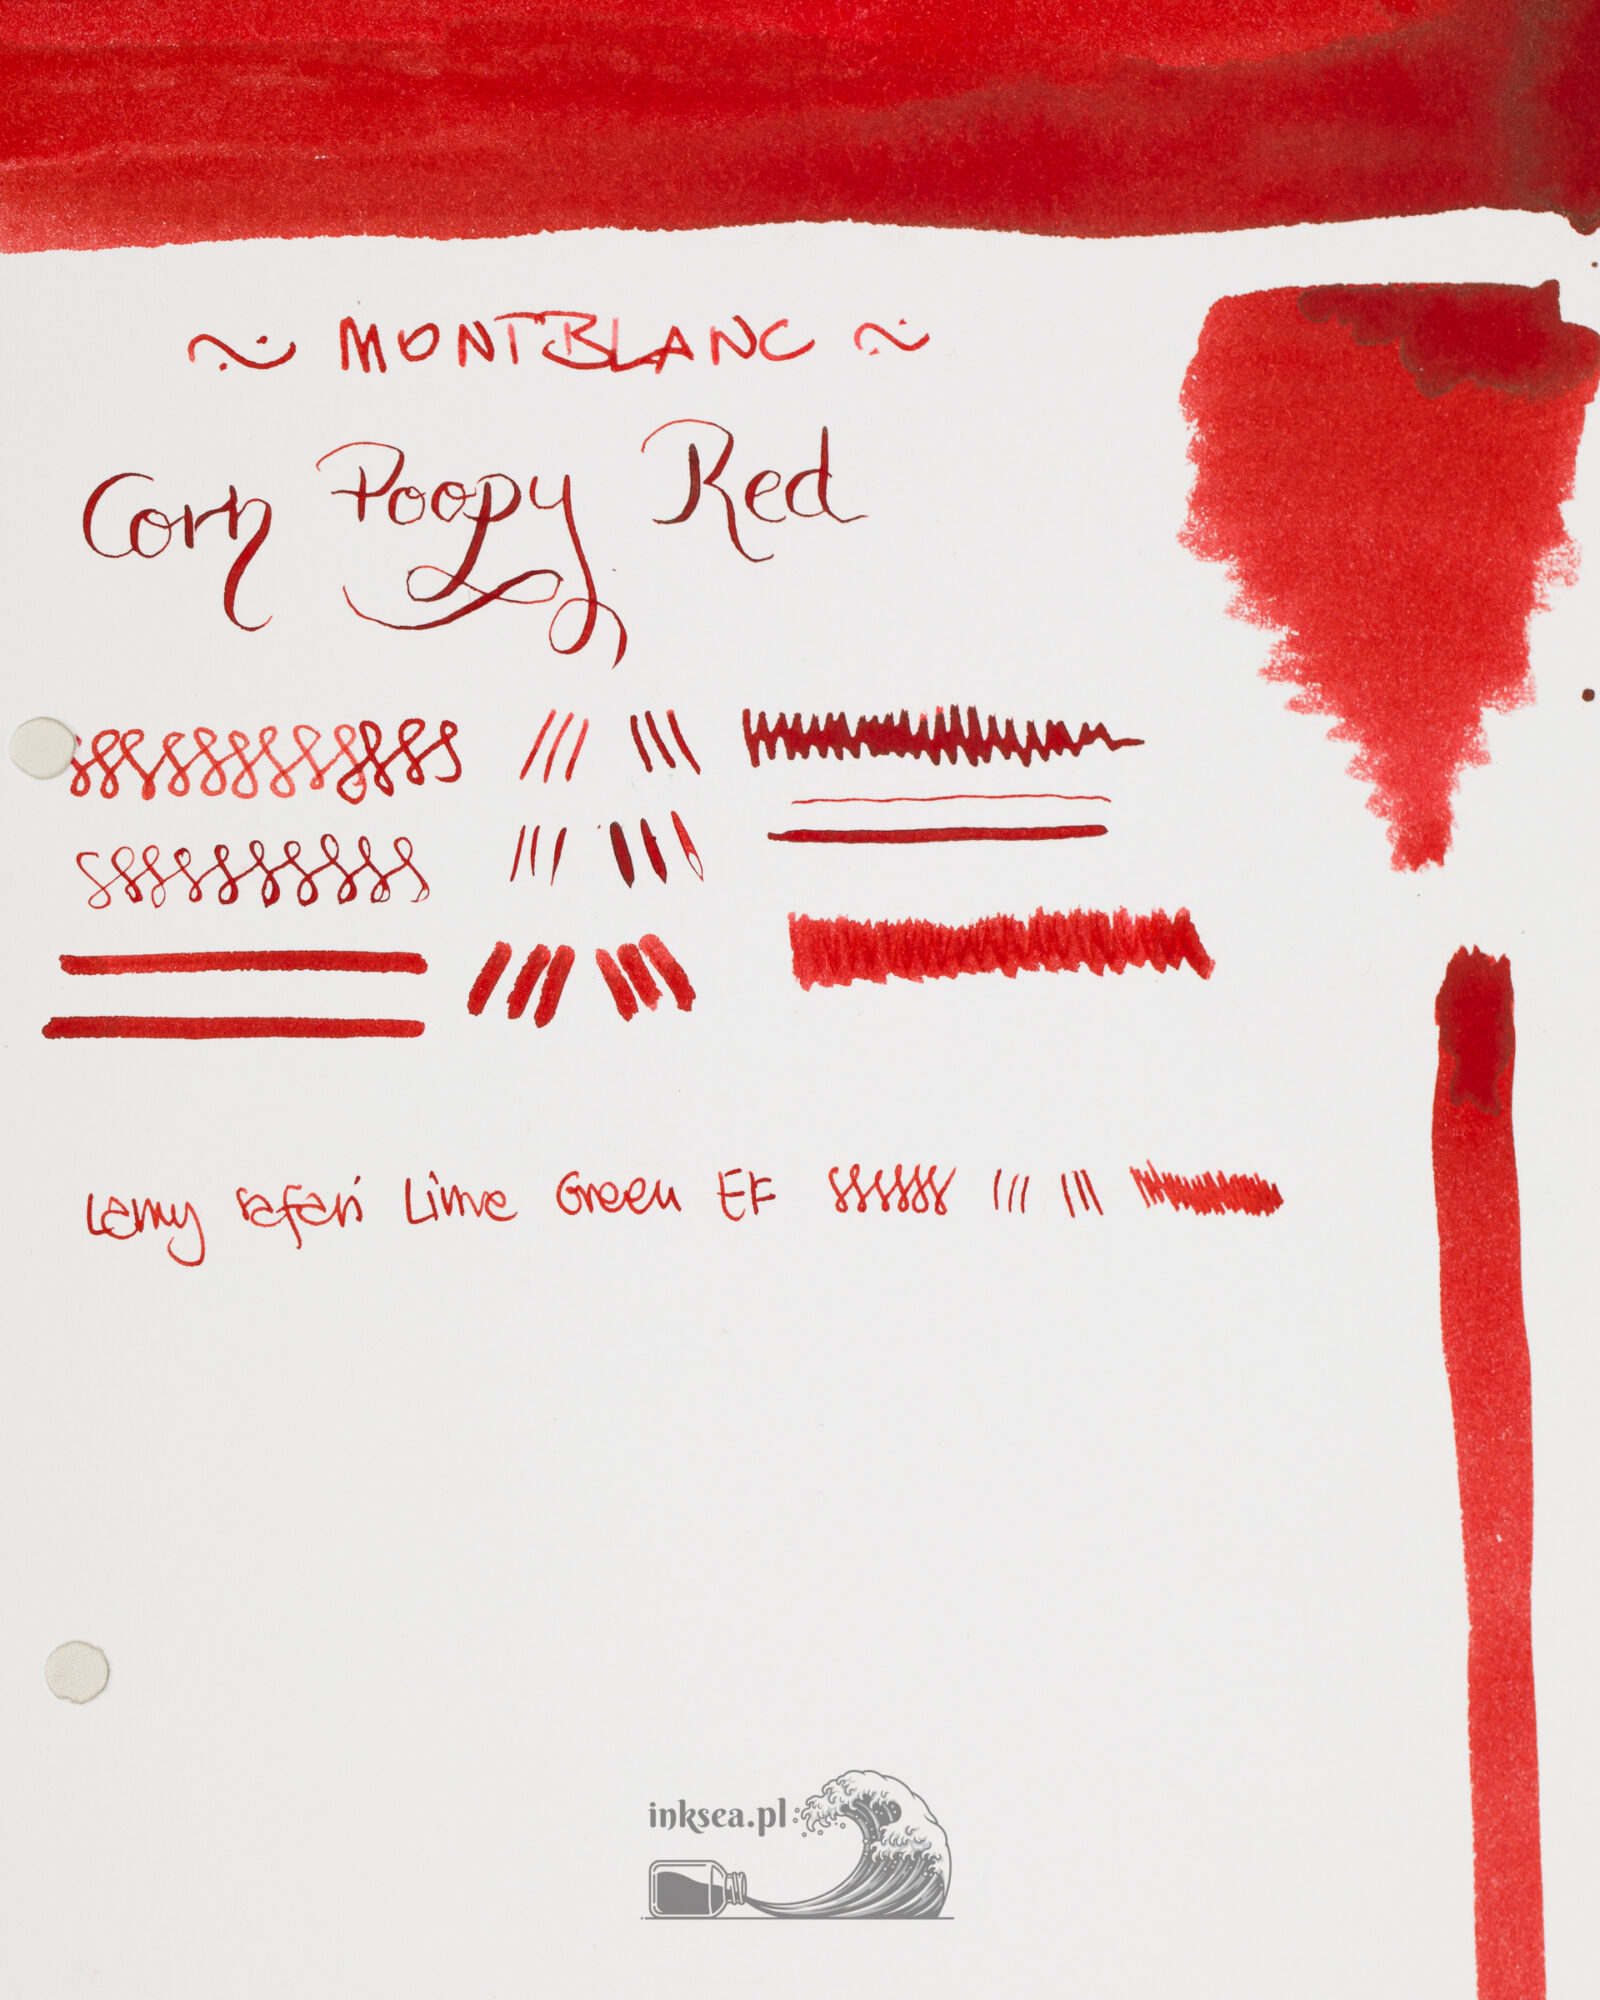 ~ MONTBLANC ~
Corn Poopy Red
Lamy safari Lime Green EF
inksea.pl